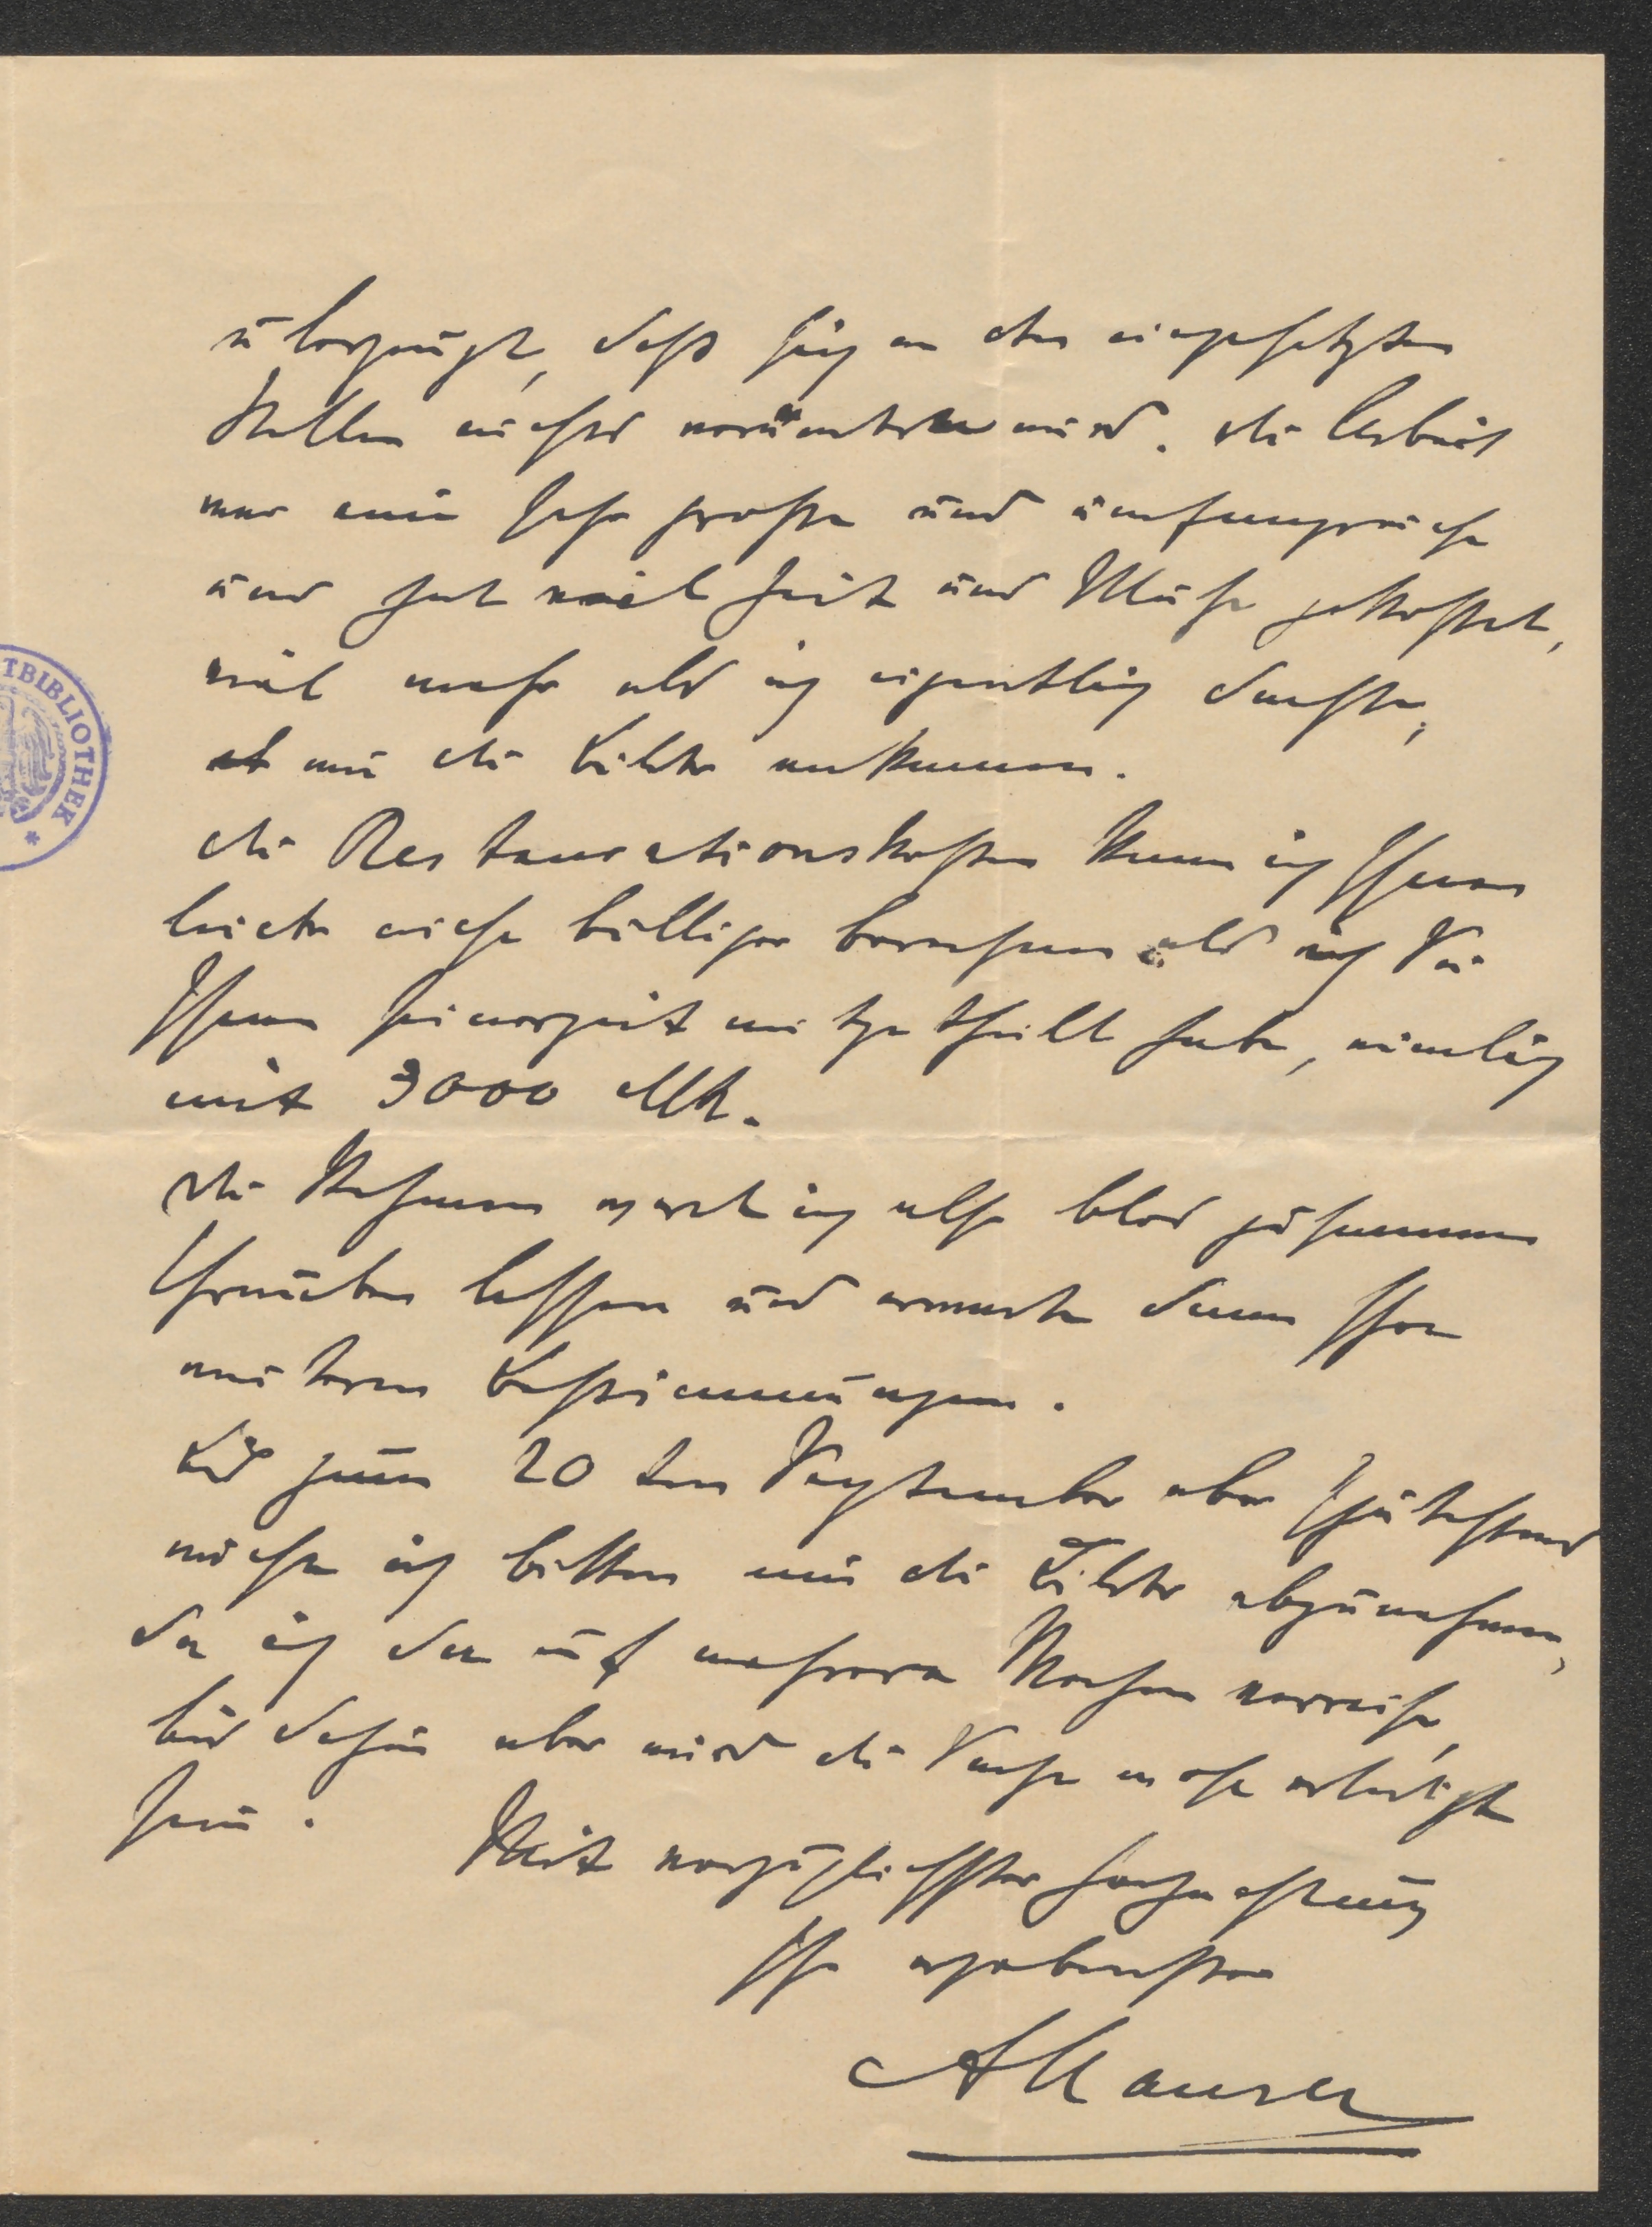 überzeugt, daß sich an den eingesetzten
Stellen nichts verändern wird. Die Arbeit
war eine sehr große und umfangreiche
und hat viel Zeit und Mühe gekostet,
viel mehr als ich eigentlich dachte,
als mir die Bilder ankamen.
Die Restaurationskosten kann ich Ihnen
leider nicht billiger berechnen als ich Sie
Ihnen seinerzeit mitgetheilt habe, nämlich
mit 3000 Mk.
Die Rahmen werd ich also blos zusammen
schrauben lassen und erwarte dann Ihre
weiteren Bestimmungen.
Bis zum 20ten September aber spätestens
möchte ich bitten mir die Bilder abzunehmen,
da ich da auf mehrere Wochen verreise,
bis dahin aber wird die Sache wohl erledigt
sein. Mit vorzüglichster Hochachtung
Ihr ergebenster
AHauser
TBIBLIOTHEK *